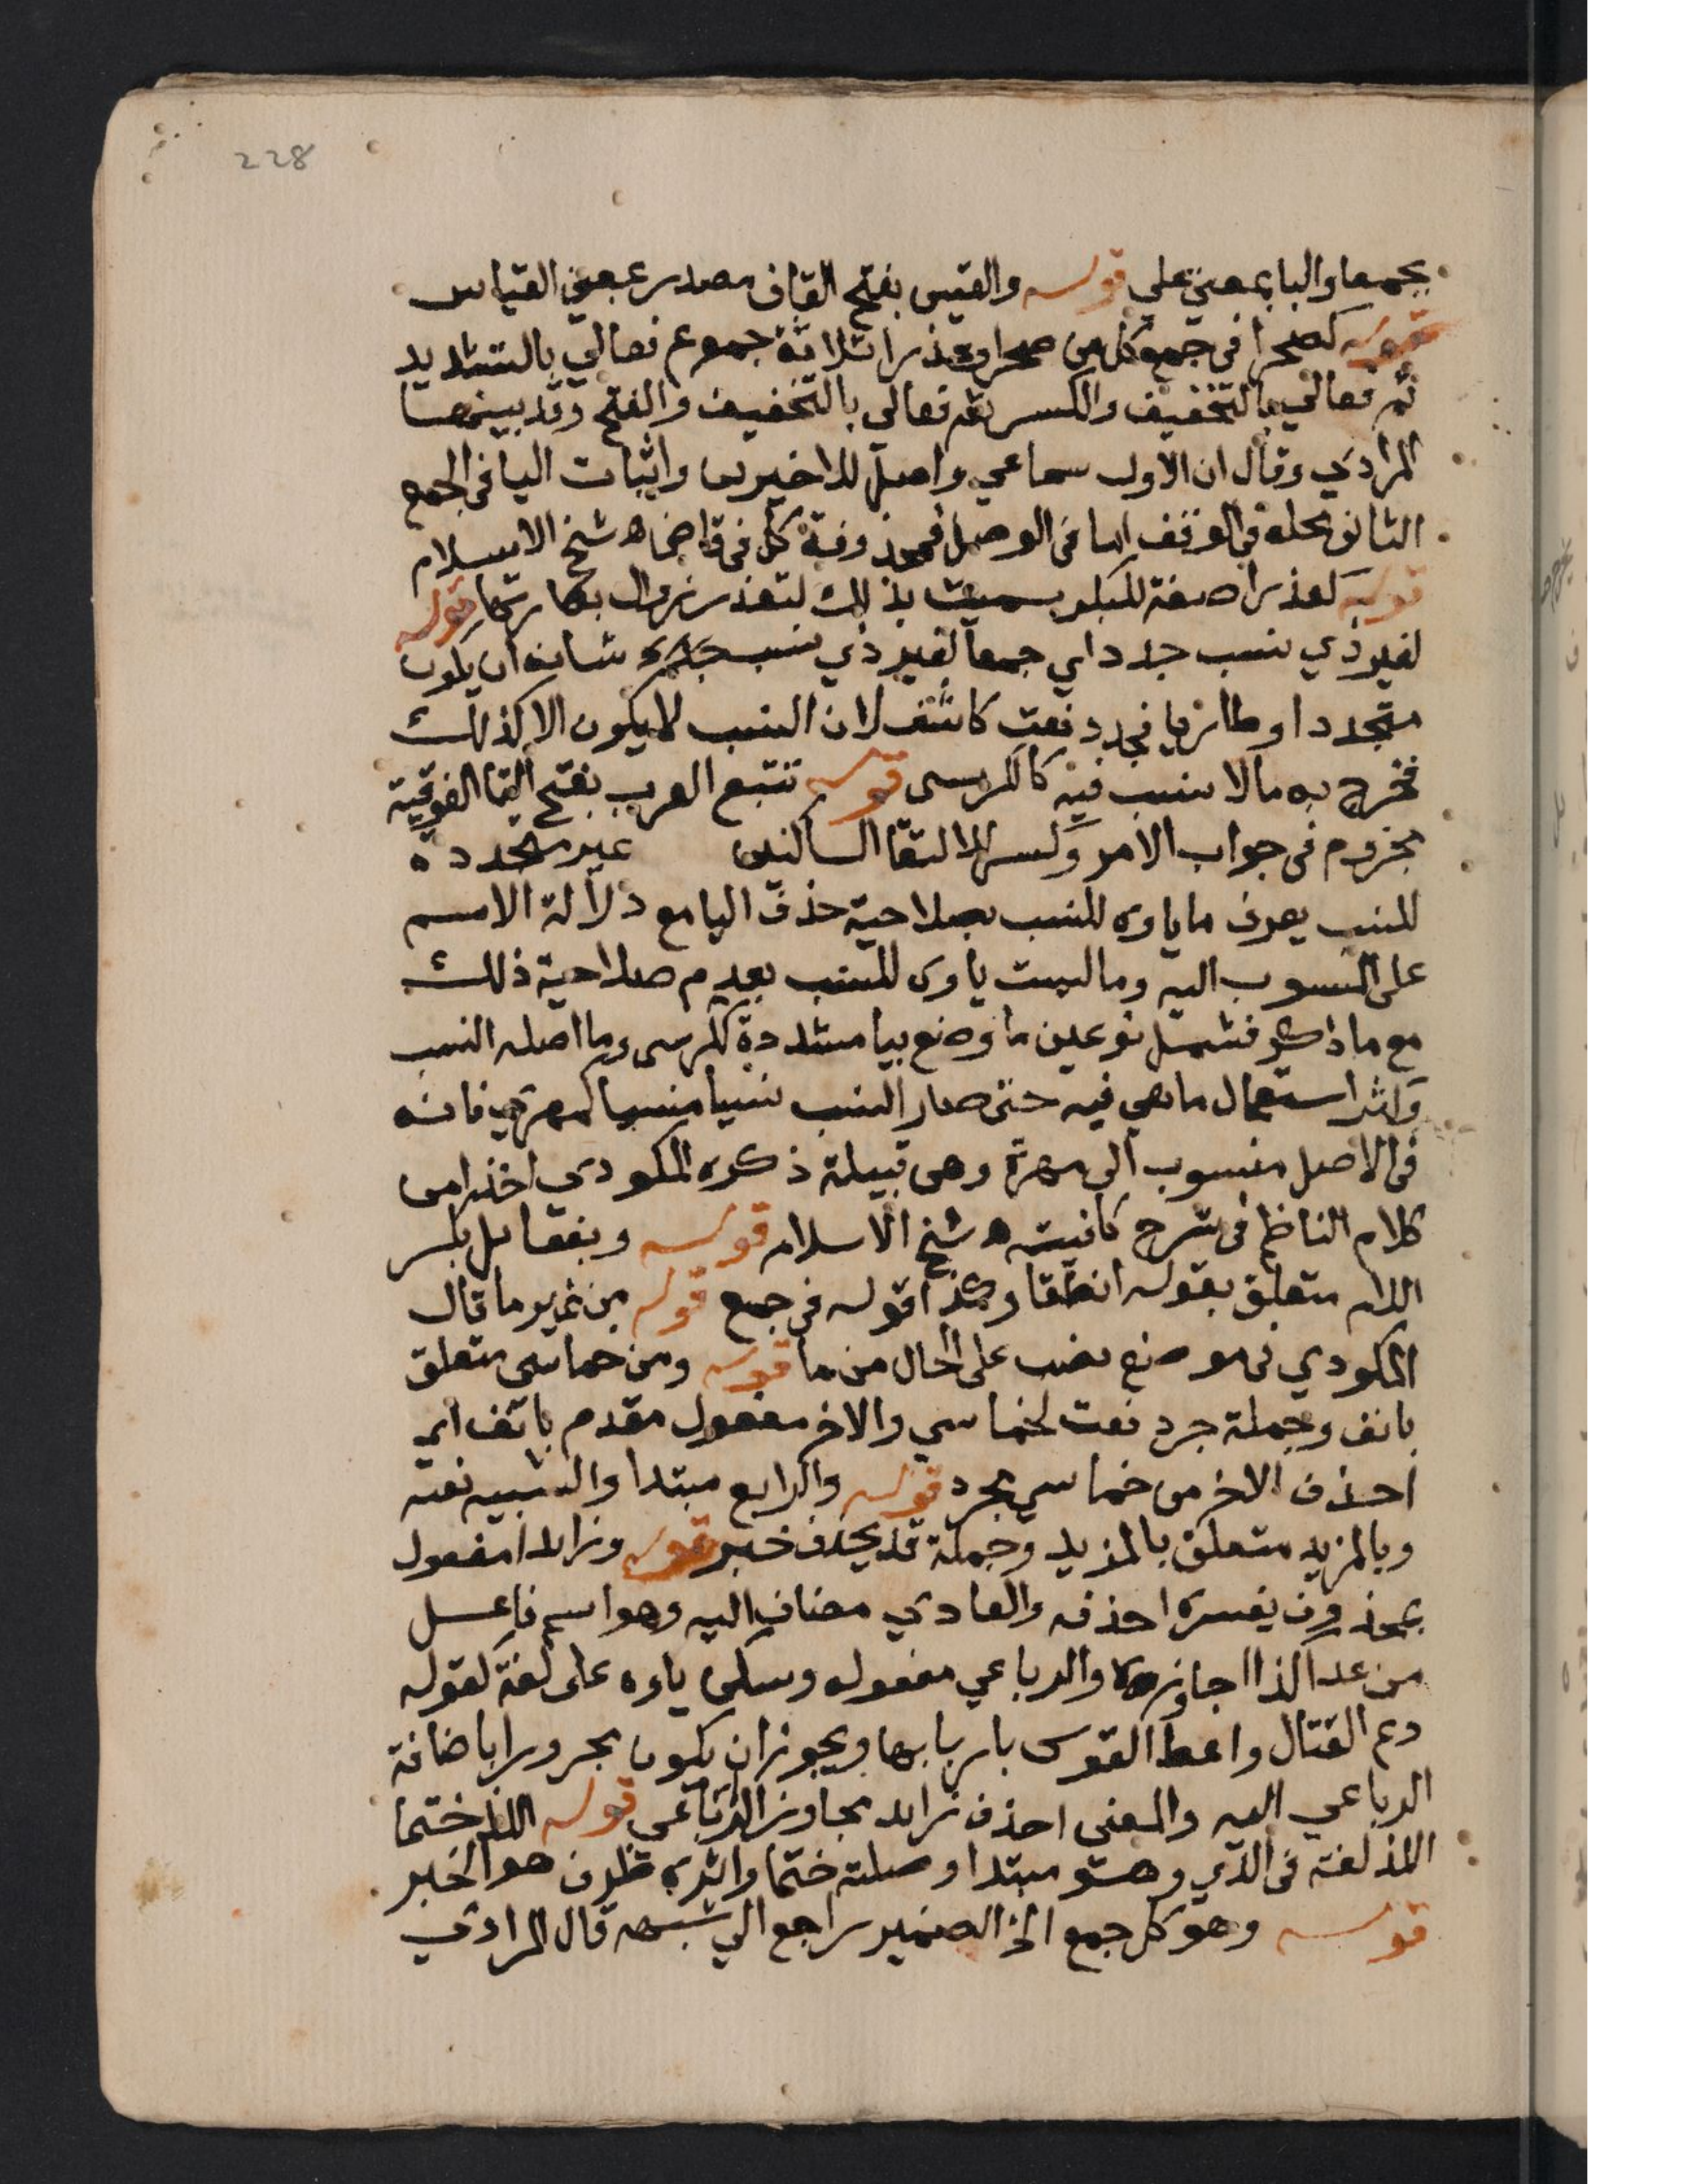 228
بجمعا والبا بمعني علي قوله والقيس بفتح القاف مصدر بمعني القياس
قوله كصحرا في جمع كل من صحرا وعذرا ثلاثة جموع فعالي بالتشديد
ثم فعالي بالتخفيف والكسر ثم فعالي بالتخفيف والفتح وقد بينها
المرادي وقال ان الاول سماعي واصل للاخيرين واثبات اليا في الجمع
الثاني محله في الوقف اما في الوصل فمحذوفة كل في قاض اه شيخ الاسلام
قوله كعذرا صفة للبكر سميت بذلك لتعذر زوال بكارتها قوله
لغير ذي نسب جدد اي جمعا لغير ذي نسب شانه ان يكون
متجددا وطاريا فجدد نعت كاشف لان النسب لا يكون الا كذلك
فخرج به مالا نسب فيه كالكرسي قوله تتبع العرب بفتح التا الفوقية
مجزوم في جواب الامر وكسر لالتقا الساكنين غير متجددة
للنسب يعرف ما ياوه للنسب بصلاحية حذف اليا مع دلالة الاسم
على المنسوب اليه وما ليست ياوه للنسب بعدم صلاحية ذلك
مع ما ذكر فشمل نوعين ما وضع بيا مشددة ككرسي وما اصله النسب
وكثر استعمال ما هي فيه حتى صار النسب نسيا منسيا كمهري فانه
في الاصل منسوب الى مهرة وهي قبيلة ذكره المكودي اخذا من
كلام الناظم في شرح كافيته اه شيخ الاسلام قوله وبفعالل بكسر
اللام متعلق بقوله انطقا وكذا قوله في جمع قوله من غير ما قال
المكودي في موضع نصب على الحال من ما قوله ومن خماسي متعلق
بانف وجملة جرد نعت لخماسي والاخر مفعول مقدم بانف اي
احذف الاخر من خماسي مجرد قوله والرابع مبتدا والشبيه نعته
وبالمزيد متعلق بالمزيد وجملة قد يحذف خبر قوله وزايد مفعول
بمحذوف يفسره احذفه والعادي مضاف اليه وهو اسم فاعل
من عدا كذا اجاوزه والرباعي مفعوله وسكن ياوه على لغة كقوله
دع القتال واعط القوس باربابها ويجوز ان يكون مجرورا باضافة
الرباعي اليه والمعنى احذف زايد مجاوز الرباعي قوله اللذ ختما
اللذ لغة في الذي وهو مبتدا وصلته ختما واثره ظرف هو الخبر
قوله وهو كل جمع الخ الضمير راجع الى شبهه قال المرادي